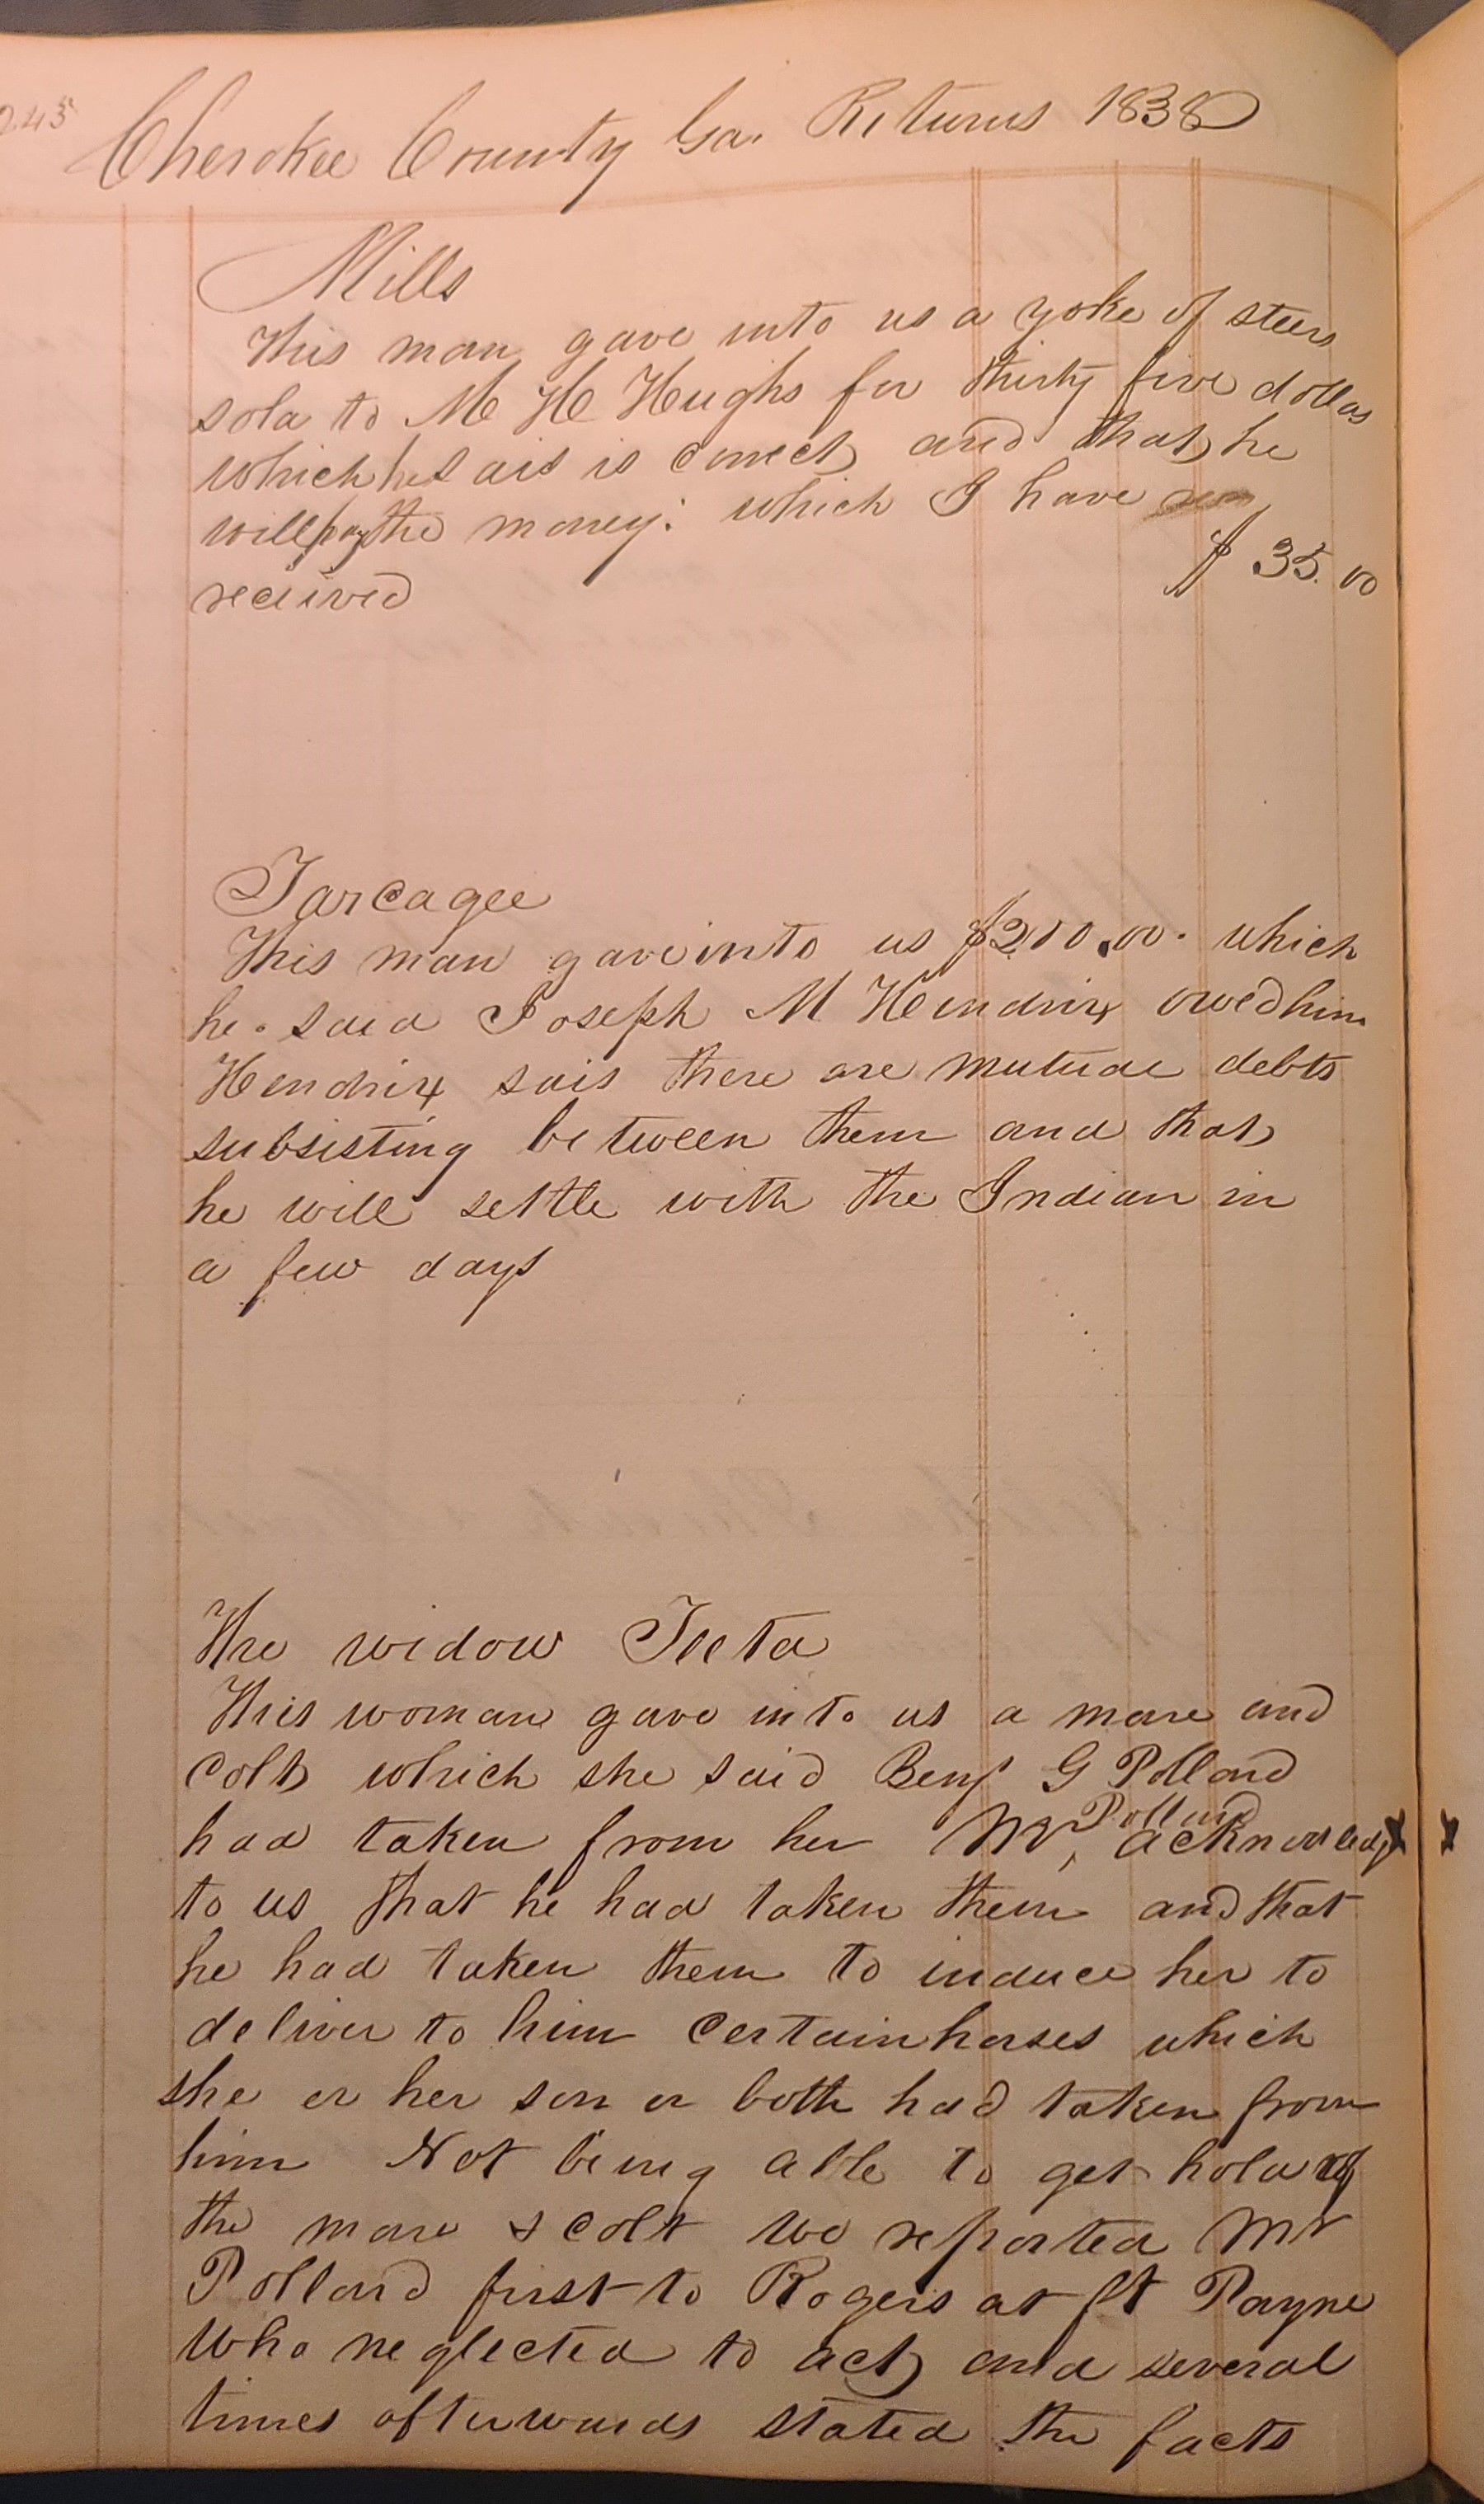 245
Cherokee County Ga. Returns 1838
Mills
This man gave into us a yoke of steers
sold to M H Hughs for thirty five dollars
which he sais is correct and that he
will pay the money: which I have
received $ 35.00
Tarcagee
This man gave into us $200.00. which
he said Joseph M Hendrix owed him
Hendrix sais there are mutual debts
subsisting between them and that
he will settle with the Indian in
a few days
The widow Teeta
This woman gave into us a mare and
colt which she said Benj G Pollard
had taken from her Mr Pollard acknowledged
to us that he had taken them and that
he had taken them to induce her to
deliver to him certain horses which
she or her son or both had taken from
him Not being able to get hold of
the mare & colt we reported Mr
Pollard first to Rogers at ft Payne
who neglected to act and several
times afterwards stated the facts